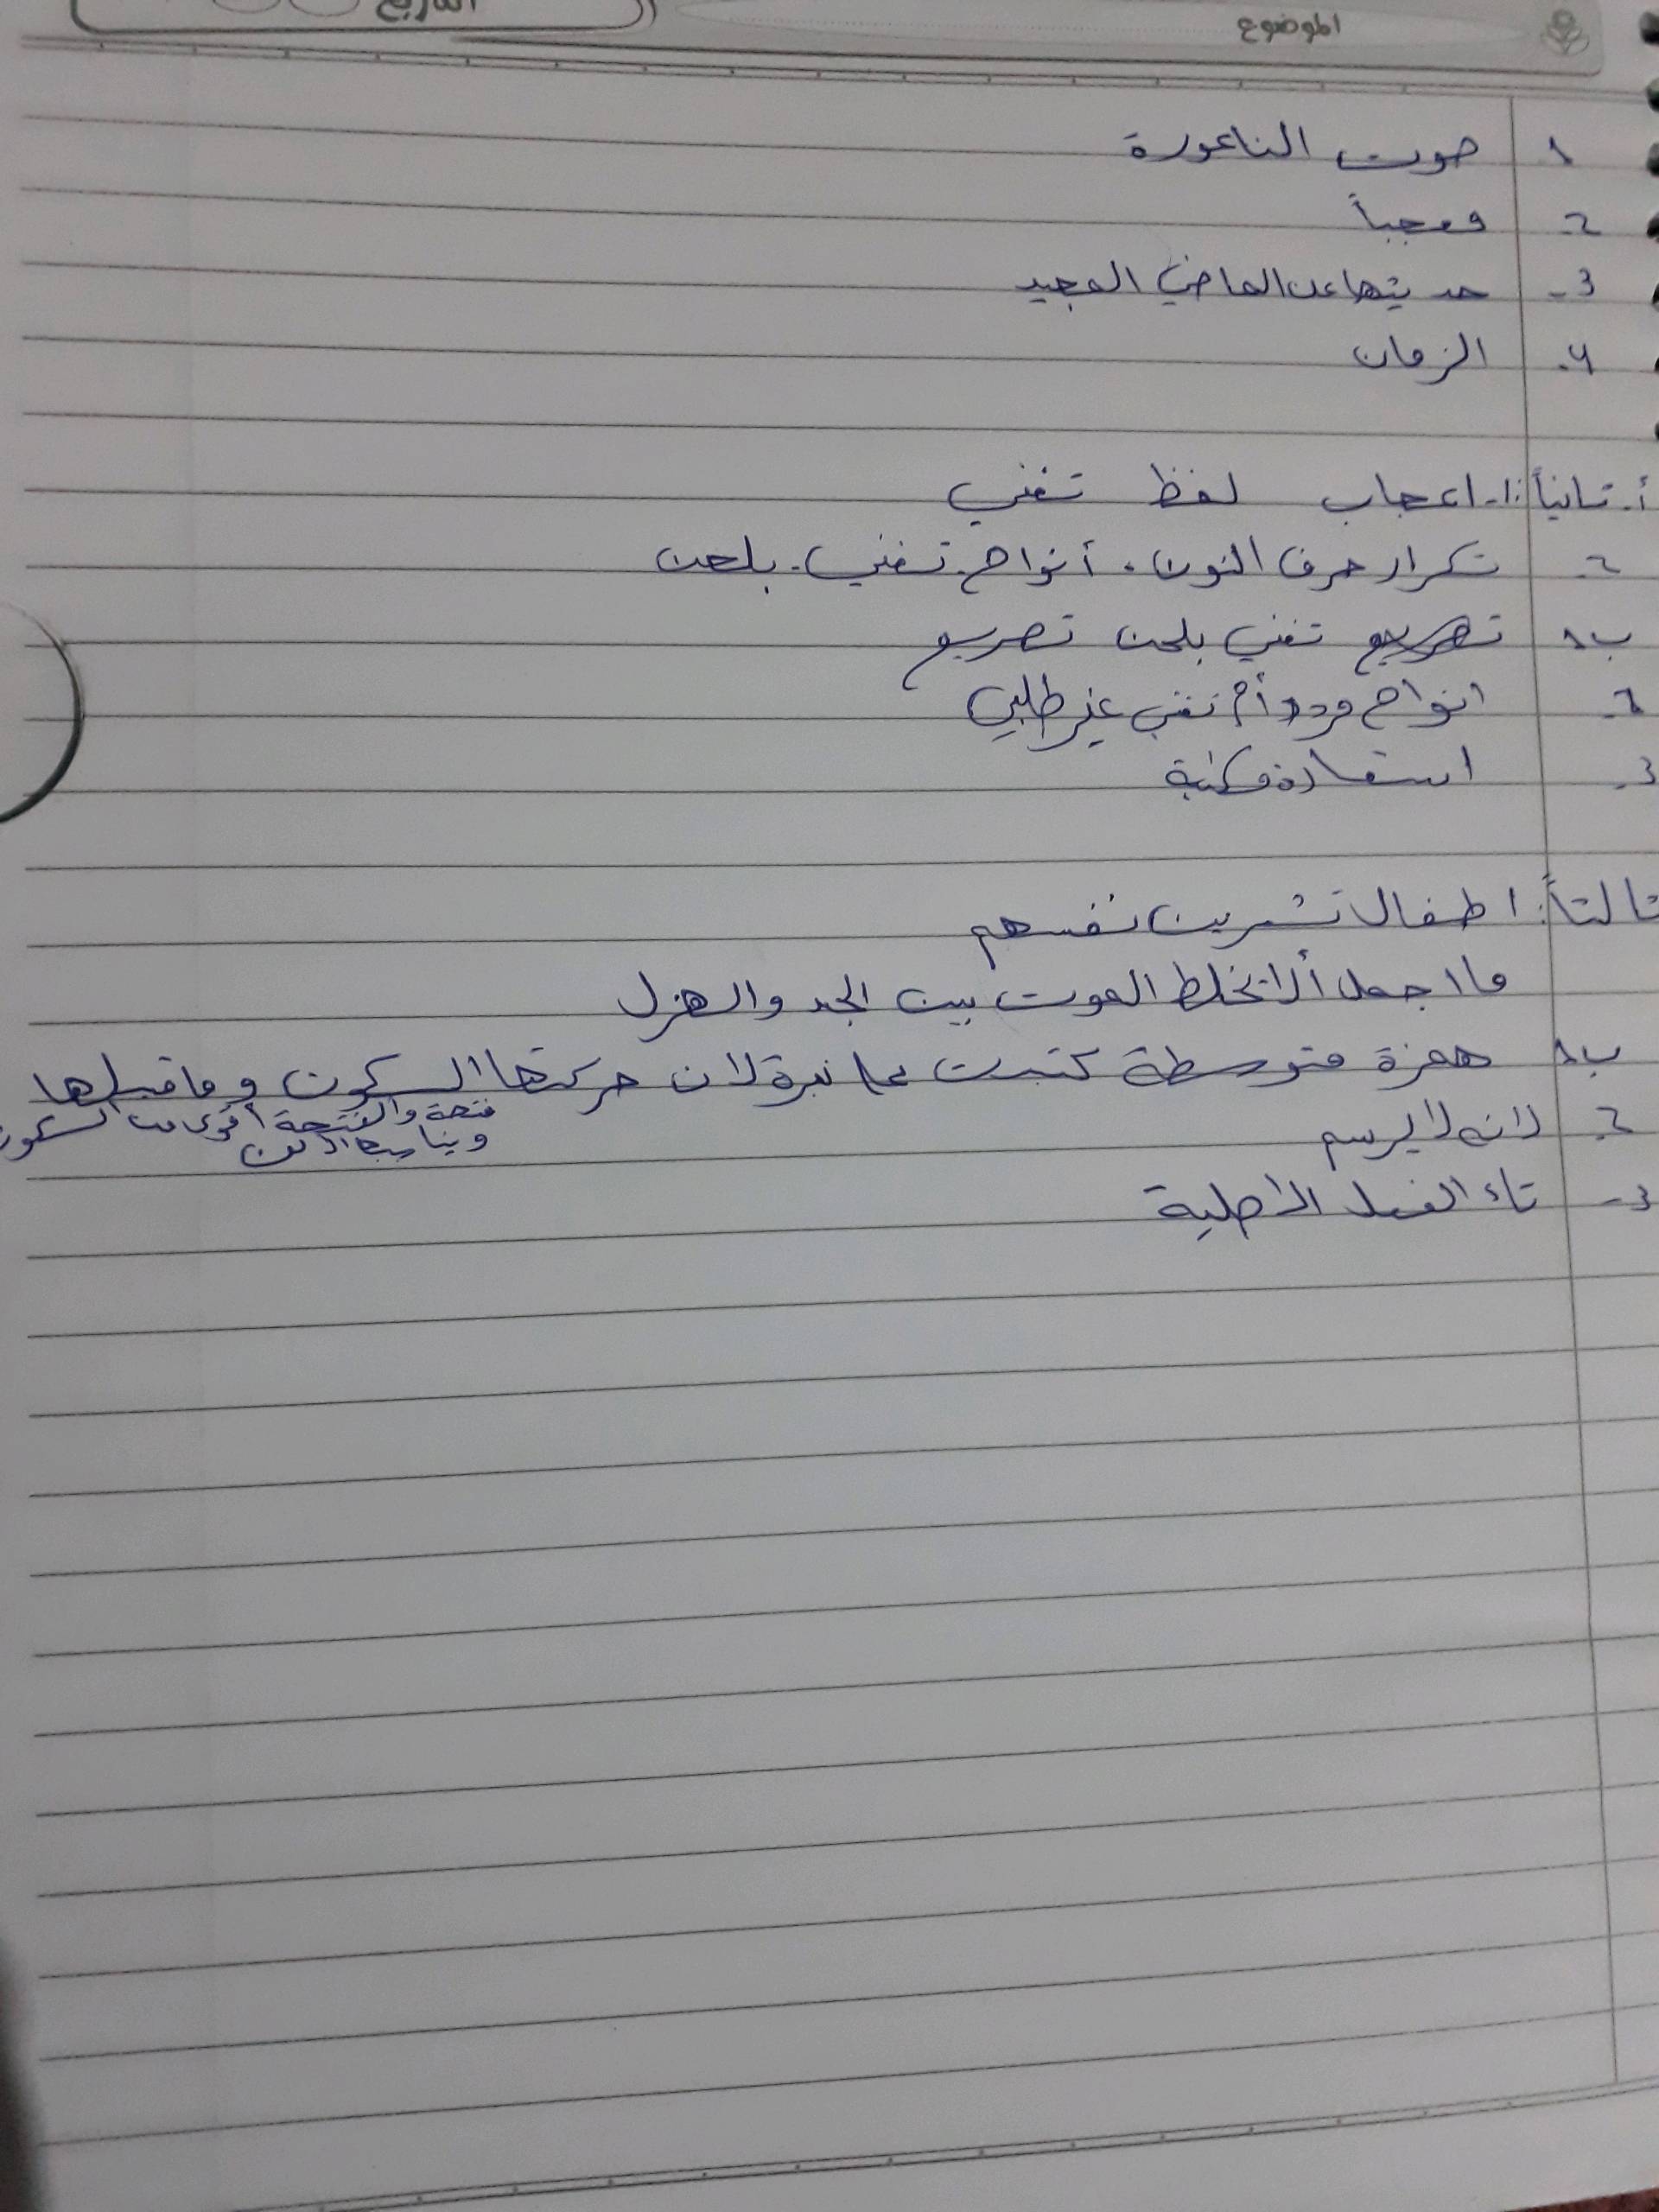 الموضوع
التاريخ
١ صوت الناعورة
2- معجباً
3- حديثها عن الماضي المجيد
4- الزمان
أ- ثانياً: 1- اعجاب لفظ تغني
2- تكرار حرف النون . أنواح . تغني . بلحن
ب ١ تغني بلحن تصريع
2- انواح مردد أم تغني غير طلبي
3- استعارة مكنية
ثالثاً: اطفال تشرين نفسهم
ما اجمل ألا يخلط الموت بين الجد والهزل
ب ١ همزة متوسطة كتبت على نبرة لان حركتها السكون وما قبلها
فتحة والفتحة أقوى من السكون
ويناسبها الألف
2- لانه لا يرسم
3- تاء الفعل الأصلية